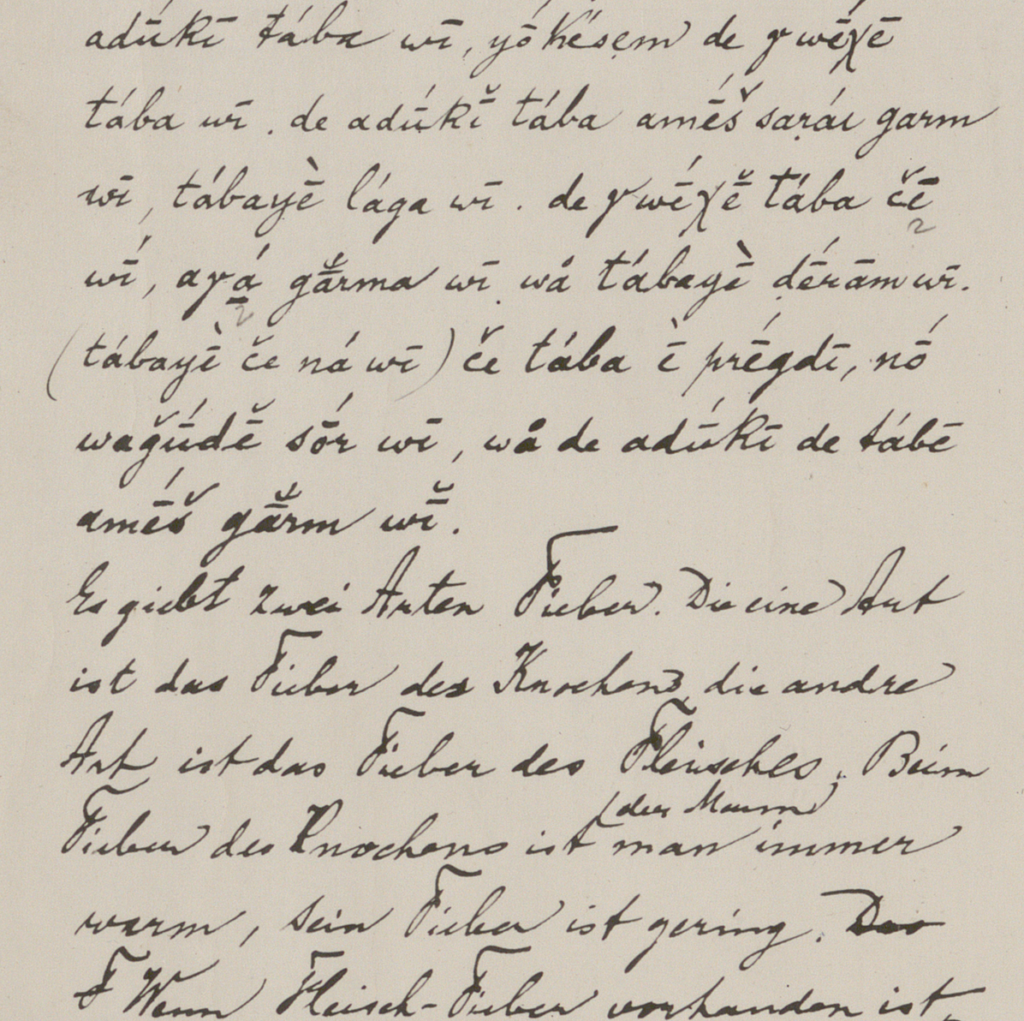 adū́kī tába wī, yṓ késem de γwḗχē
tába wī. de adū́kī̆ tába amḗš saṛái garm
wī, tábayḕ lága wī. de γwḗχē̆ tába čē
wī́, aγá gā̆rma wī wå tábayḕ ḍērām wī.
(tábayḕ če ná wī) če tába ḕ prḗgdī, nṓ
waǧū́dē̆ sṓr wī, wå de adū́kī de tábē
amḗš gā̆rm wī̆.
Es giebt zwei Arten Fieber. Die eine Art
ist das Fieber des Knochens, die andre
Art ist das Fieber des Fleisches. Beim
(der Mann)
Fieber des Knochens ist man immer
warm, sein Fieber ist gering. Das
F Wenn Fleisch-Fieber vorhanden ist,